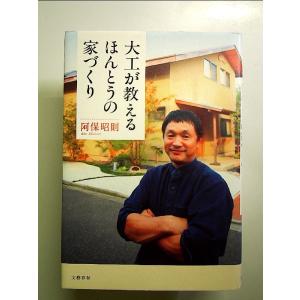 大工が教える
ほんとうの
家づくり
阿保昭則
文藝春秋